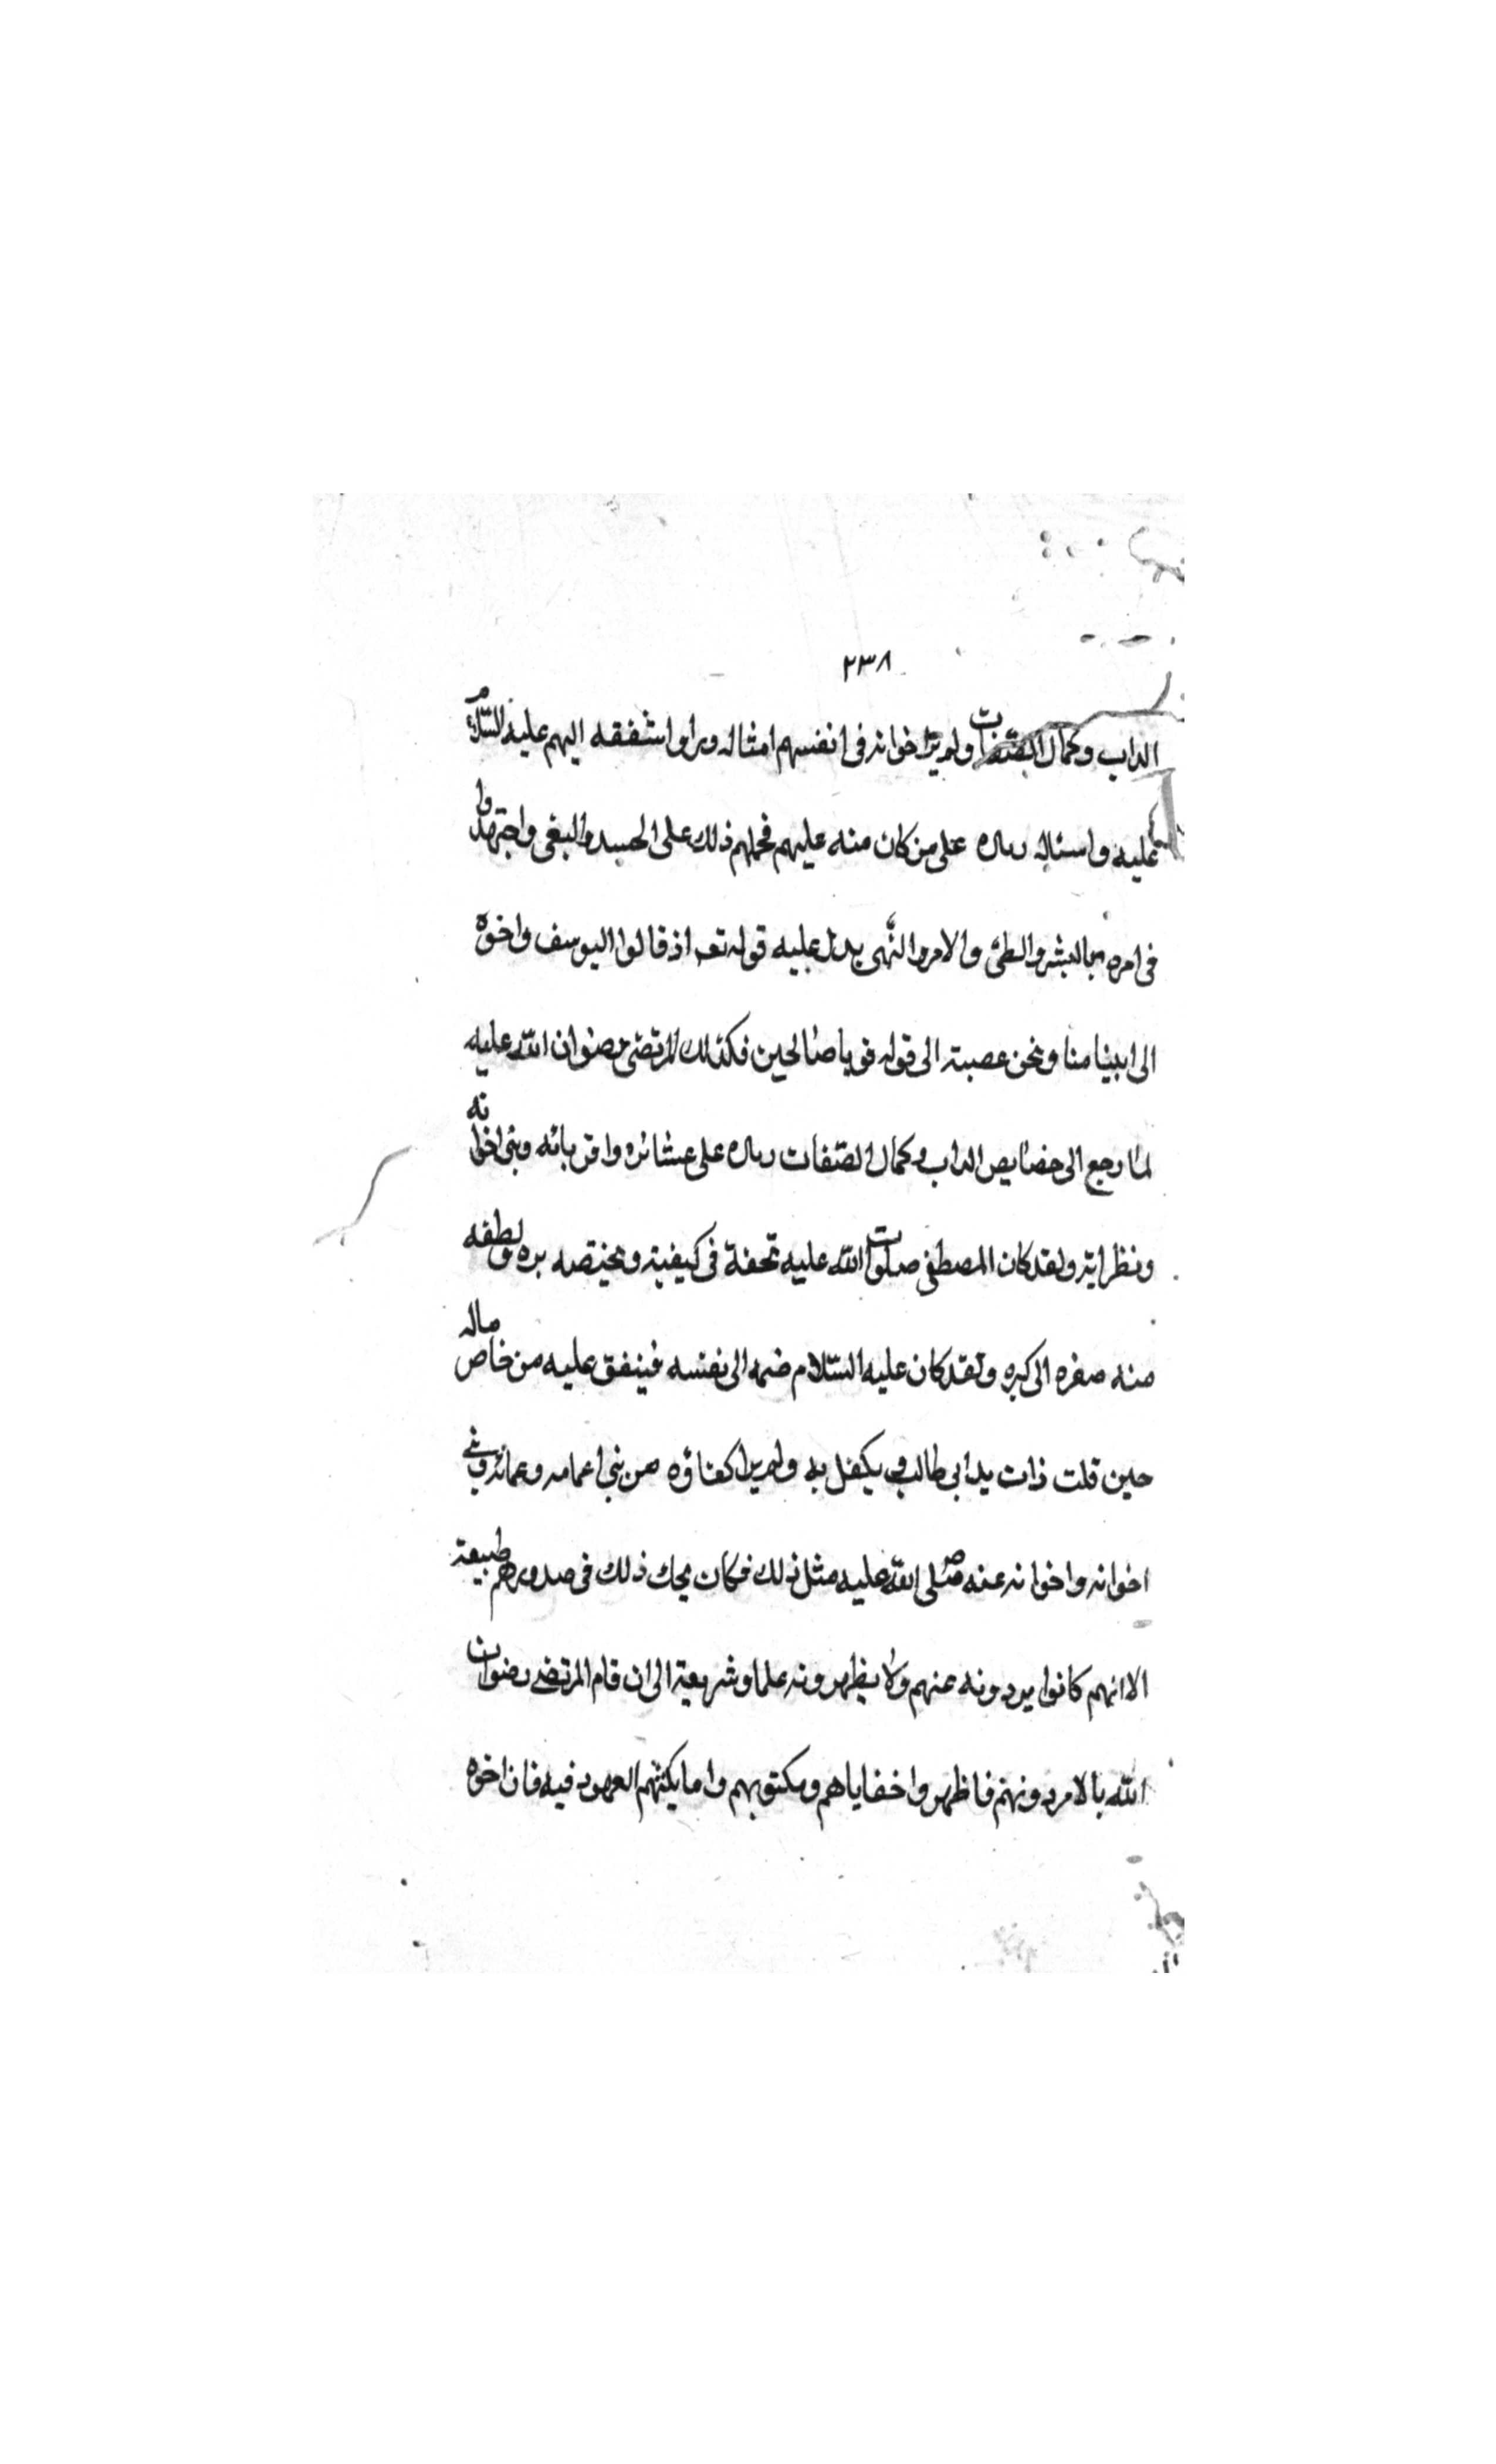 ٢٣٨
الداب وكمال الصّفات ولم يرَ اخوانه فى انفسهم امثاله وراوا شفقه اليهم عليه السّلام
عليه واسئاله رىاده على من كان منه عليهم فحملهم ذلك على الحسد والبغى واجتهدوا
فى امره بالبشر والطئ والامر والنّهى يدل عليه قوله تعه اذ قالوا اليوسف واخوه
الى ابينا منا ونحن عصبته الى قوله قويا صالحين فكذلك المرتضى رضوان الله عليه
لما رجع الى خصايص الداب وكمال الصّفات رىاده على عشائره واقربائه وبنى اخوانه
ونظرايه ولقد كان المصطفى صلوات الله عليه تحفة فى كيفيته ويختصه بره ولطفه
منه صغره الى كبره ولقد كان عليه السّلام ضمه الى نفسه فينفق عليه من خاص ماله
حين قلت ذات يد ابى طالب يكفل به ولم يرا كفاؤه من بنى اعمامه وعمائه وبنى
اخوانه واخوانه عنه صلّى الله عليه مثل ذلك فكان يحك ذلك فى صدورهم طبيعة
الا انهم كانوا يردونه عنهم ولا يظهرونه علما وشريعة الى ان قام المرتضى رضوان
الله بالامر دونهم فاظهروا خفاياهم ومكتوبهم واما يكنهم العهود فيه فان اخوه